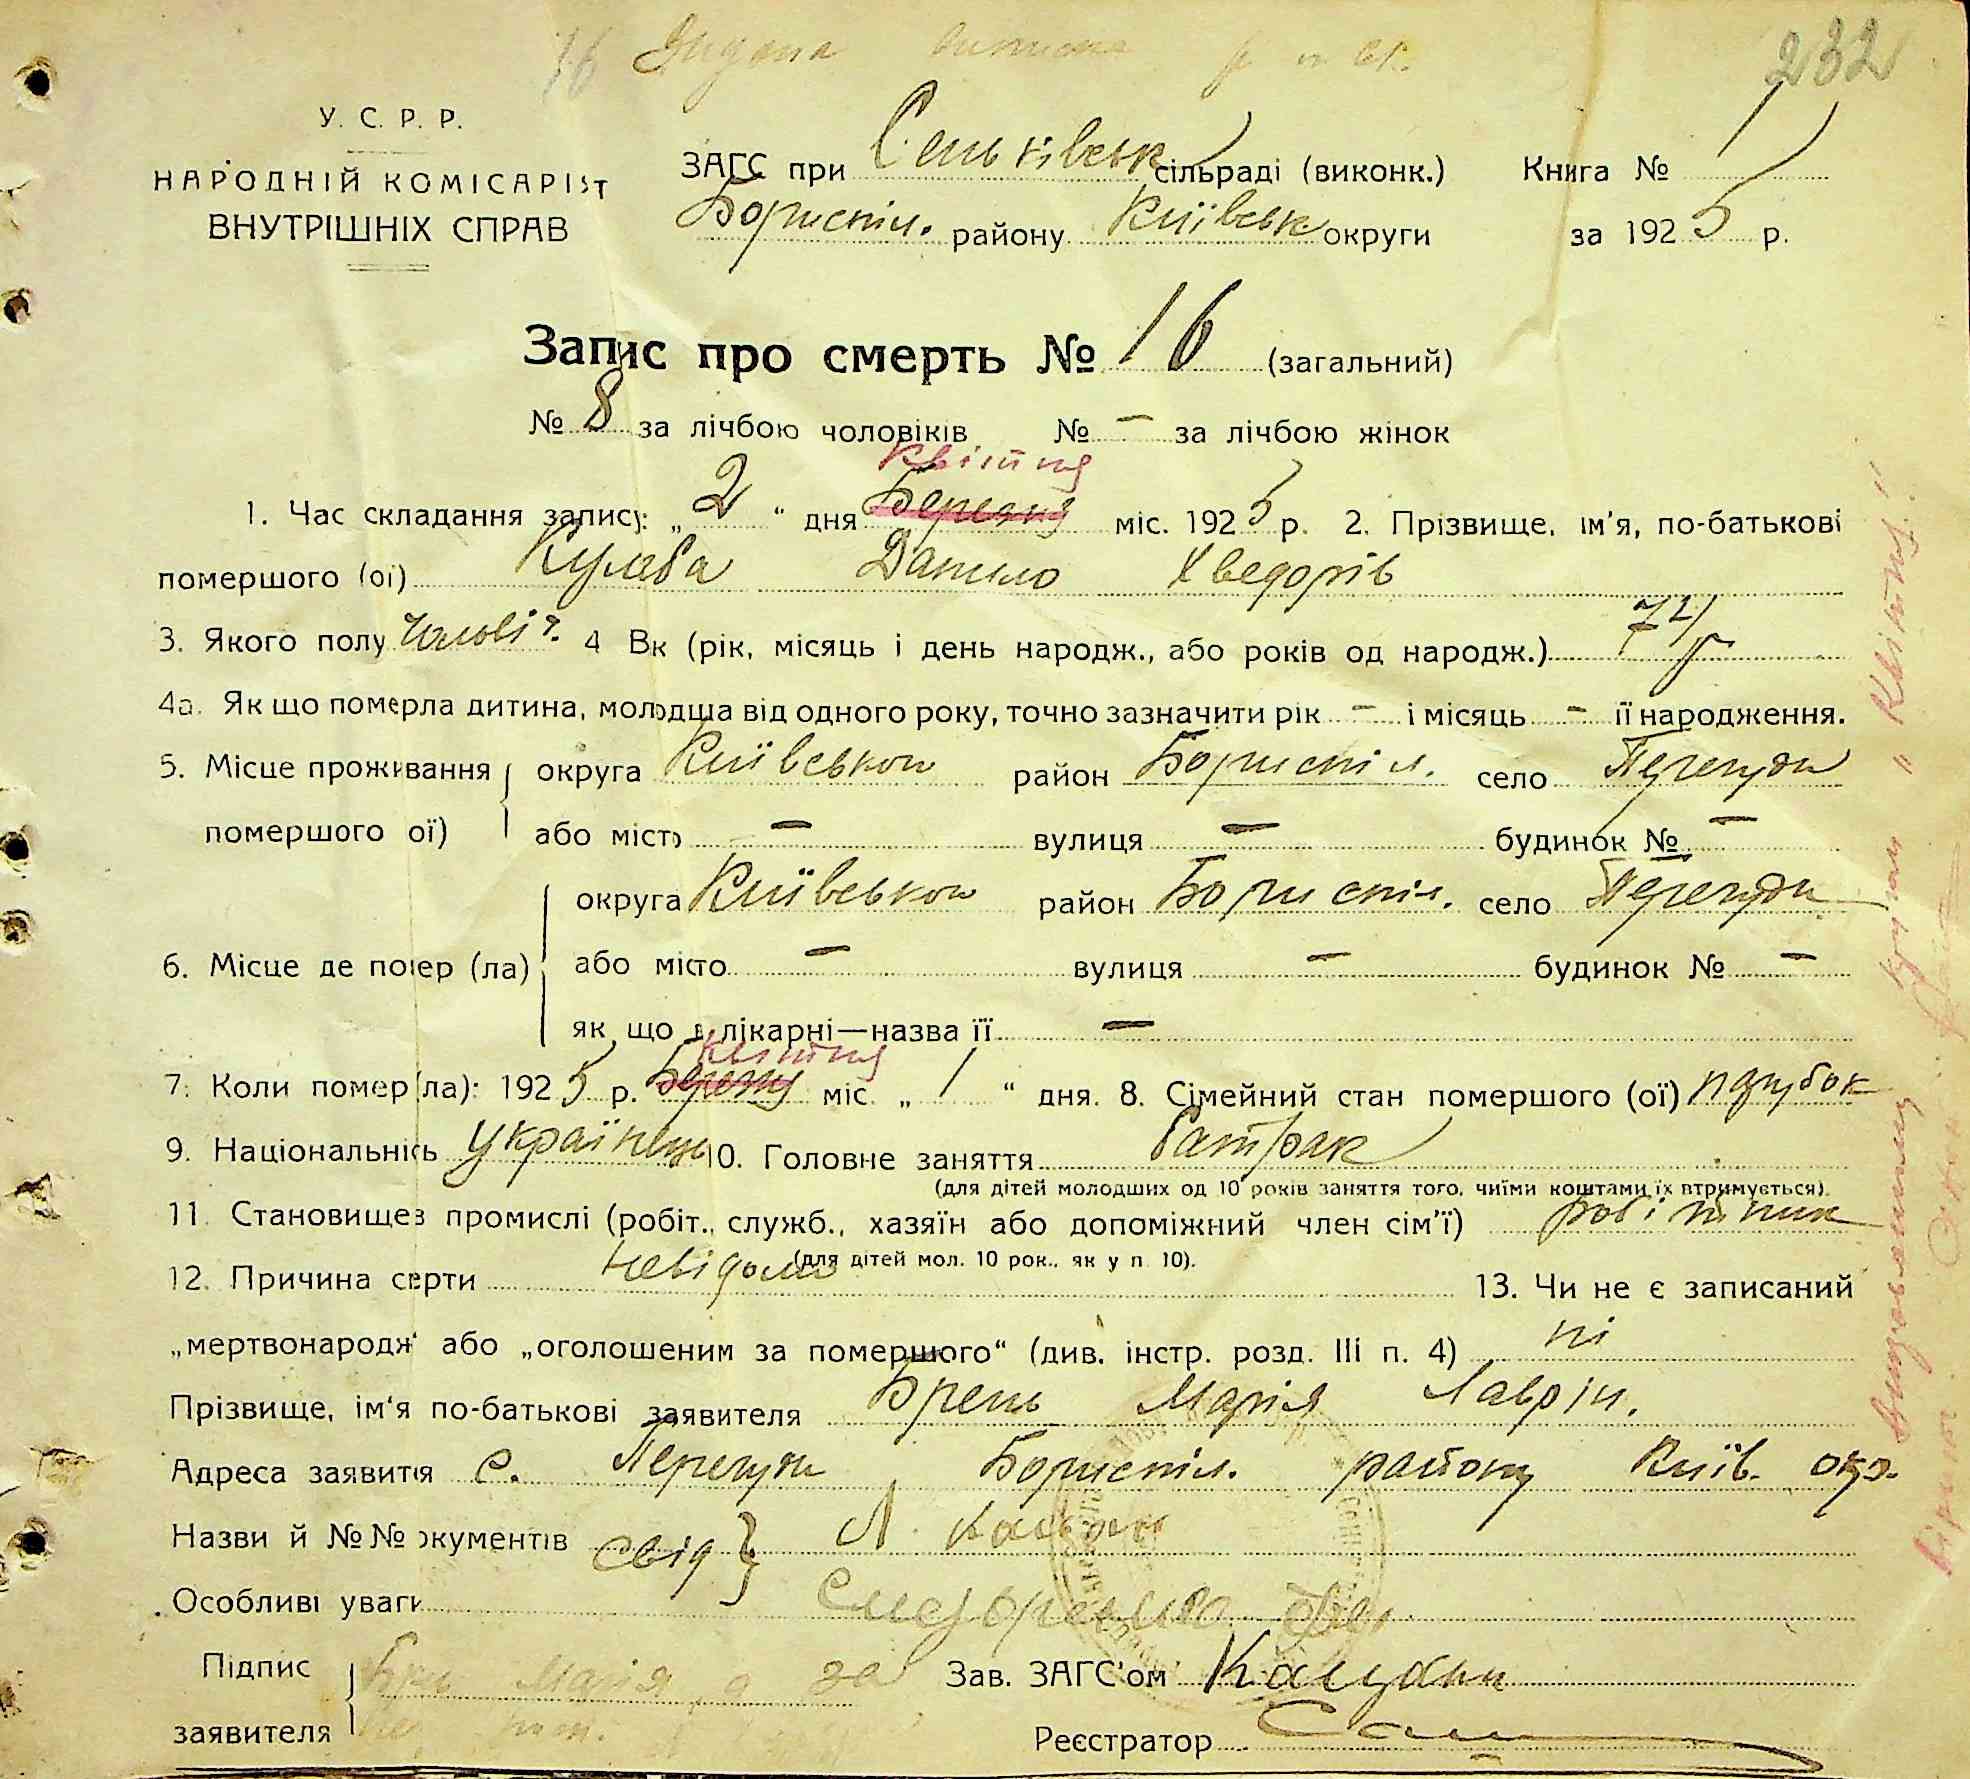 16 Видана виписка
232
У. С. Р. Р.
НАРОДНІЙ КОМІСАРІЯТ
ВНУТРІШНІХ СПРАВ
ЗАГС при Сеньківськ сільраді (виконк.) Книга № 1
Бориспіл. району Київськ округи за 1925 р.
Запис про смерть № 16 (загальний)
№ 8 за лічбою чоловіків № – за лічбою жінок
Квітня
1. Час складання запису: „2“ дня Березня міс. 1925 р. 2. Прізвище, ім'я, по-батькові
помершого (ої) Данило Хведорів
3. Якого полу чолові ч. 4 Вк (рік, місяць і день народж., або років од народж.) 72 р
4а. Як що померла дитина, молодша від одного року, точно зазначити рік – і місяць – її народження.
5. Місце проживання округа Київською район Бориспіл. село Перегуди
помершого ої) або місто – вулиця – будинок № –
округа Київською район Бориспіл. село Перегуди
6. Місце де помер (ла) або місто – вулиця – будинок № –
як що в лікарні—назва її –
Квітня
7. Коли помер (ла): 1925 р. Березня міс. „1“ дня. 8. Сімейний стан помершого (ої) парубок
9. Національнісь Українець 10. Головне заняття батрак
(для дітей молодших од 10 років заняття того, чиїми коштами їх втримується).
11. Становище в промислі (робіт., служб., хазяїн або допоміжний член сім'ї) робітник
(для дітей мол. 10 рок., як у п 10).
12. Причина серти невідома 13. Чи не є записаний
„мертвонародж“ або „оголошеним за помершого“ (див. інстр. розд. III п. 4) ні
Прізвище, ім'я по-батькові заявителя Брень Марія Лаврін.
Адреса заявитя с. Перегуди Бориспіл. району Київ. окр.
Назви й №№ документів свід} Л.
Особливі уваги Сидоренко
Підпис Марія а за
заявителя
Зав. ЗАГС'ом
Реєстратор
Виправленому вірити „Квітня“